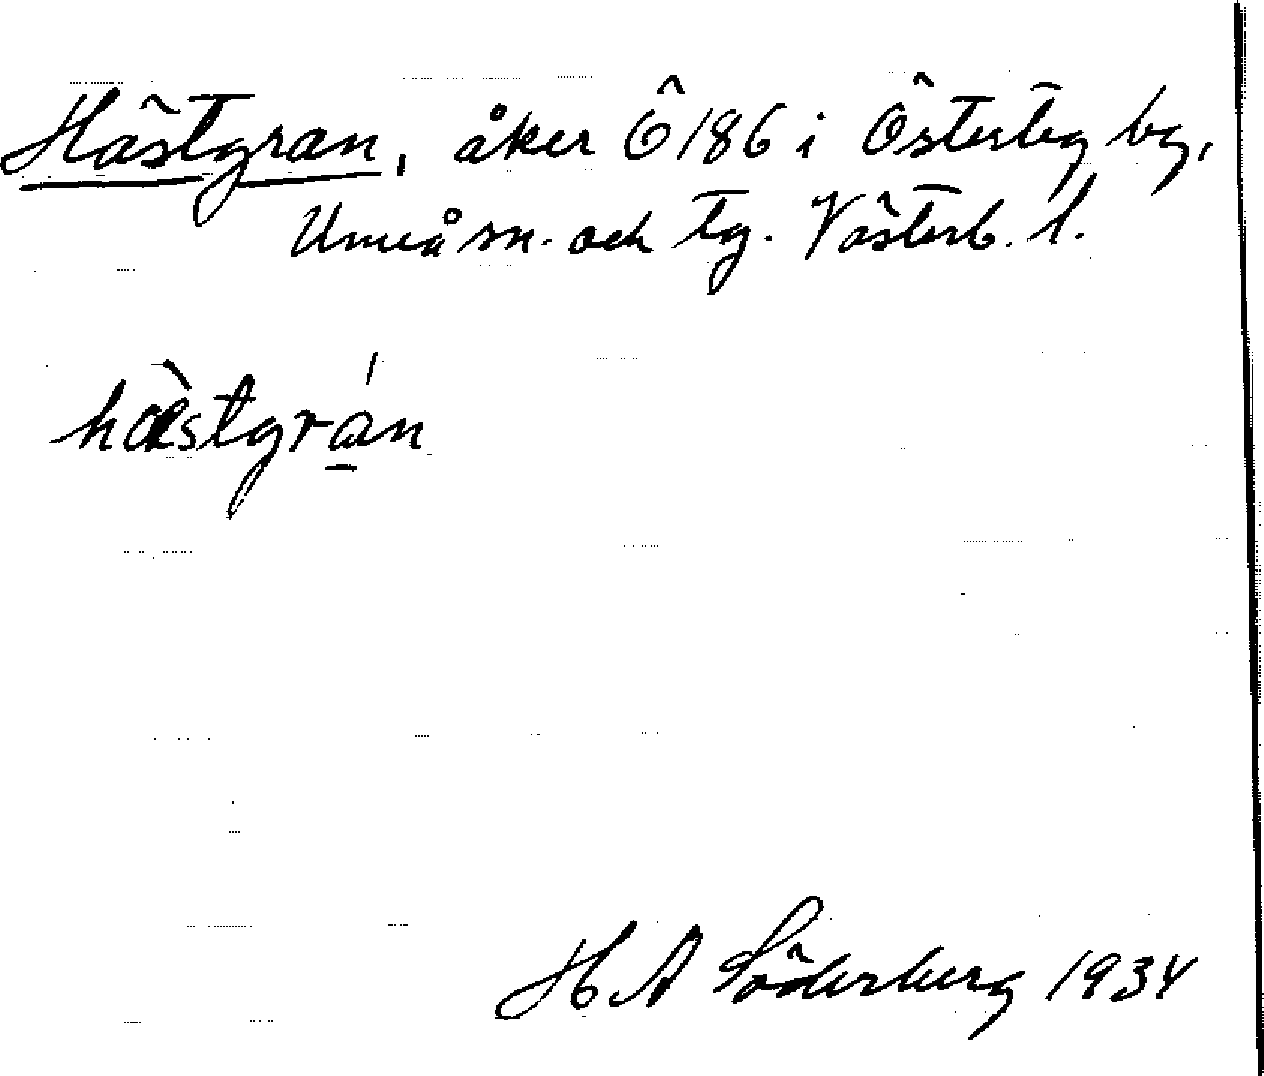 Hästgran, åker Ö 186 i Österteg by,
Umeå sn. och tg. Västerb. l.
hæ̀stgrá̲n
H A Söderberg 1934